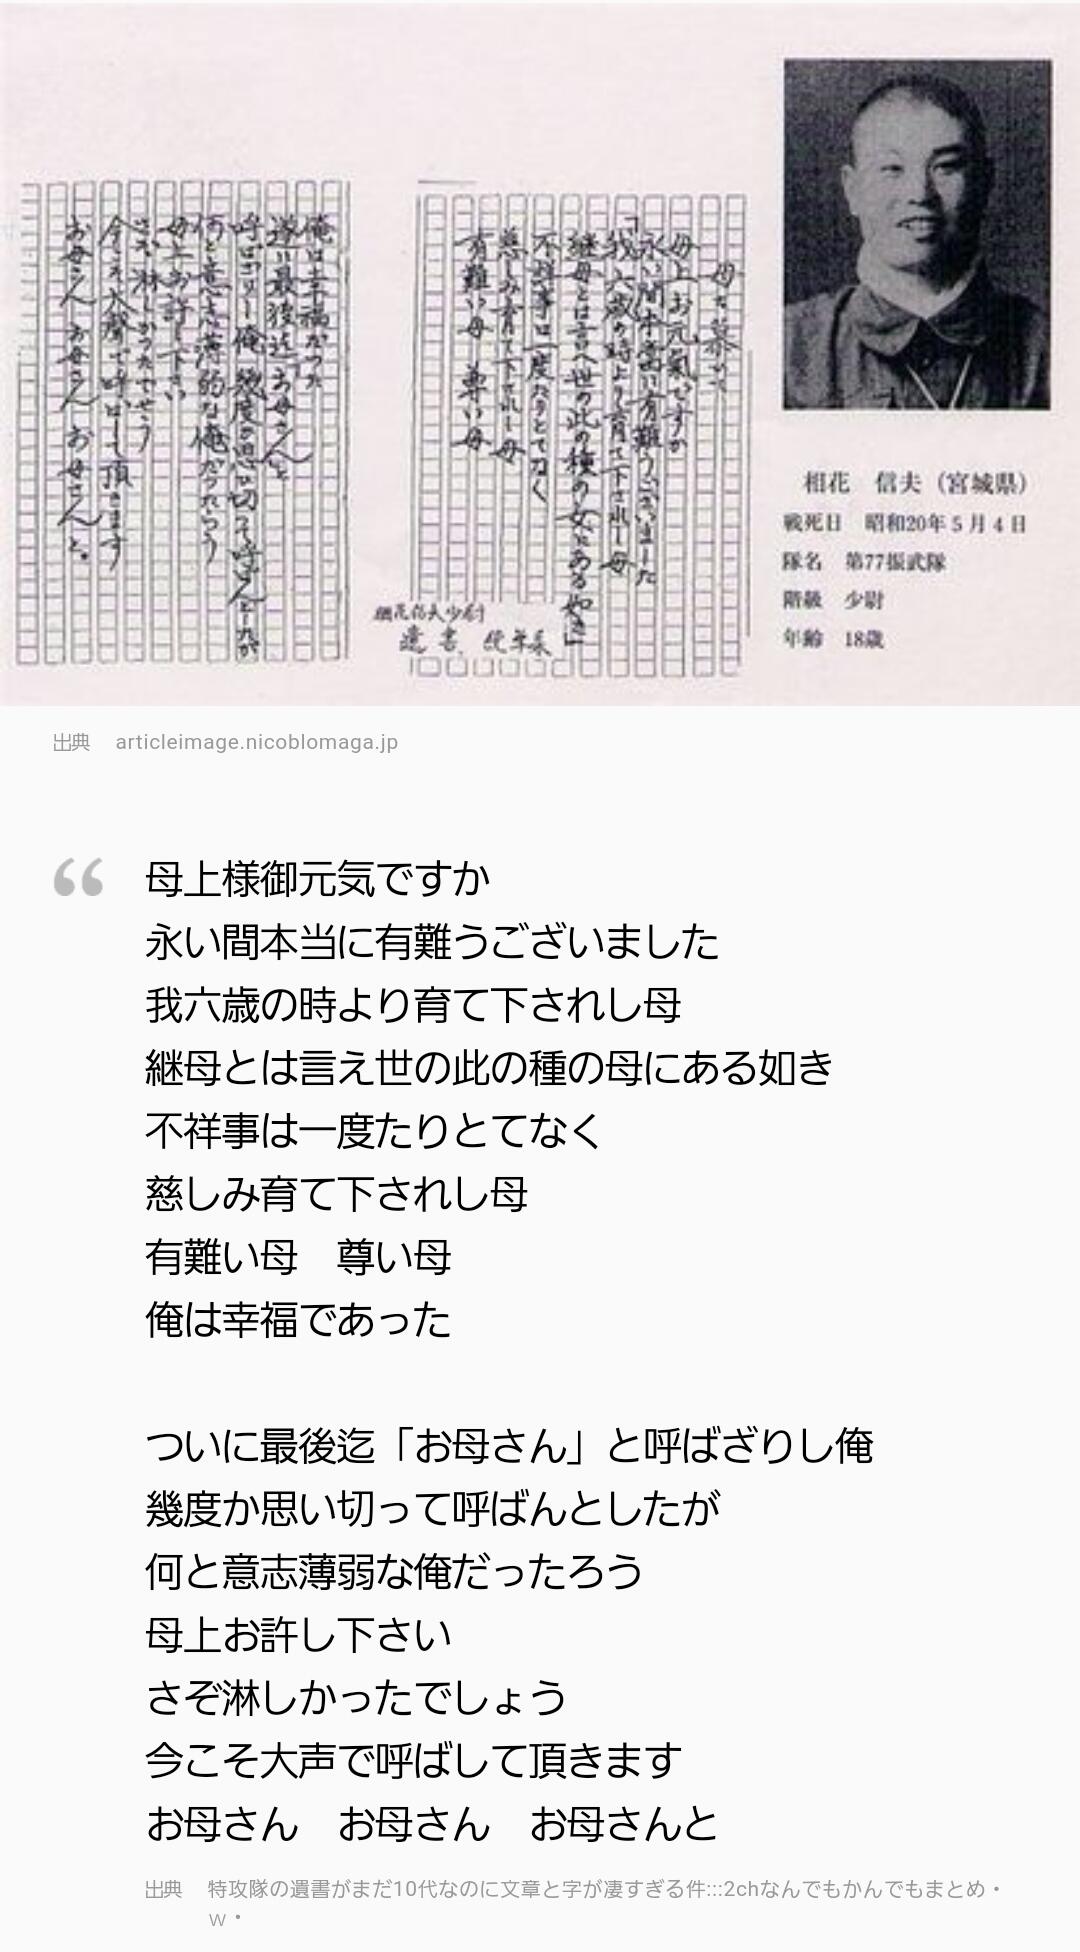 母を慕いて
母上お元気ですか
永い間本当に有難うございました
「我六歳の時より育て下されし母
継母とは言へ世の此の種の女にある如き」
不祥事は一度たりとてなく
慈しみ育て下されし母
有難い母　尊い母
俺は幸福だった
遂に最後迄「お母さん」と
呼ばざりし俺　幾度か思い切って呼ばんとしたが
何と意志薄弱な俺だったらう
母上お許し下さい
さぞ淋しかったでせう
今こそ大声で呼ばして頂きます
お母さん　お母さん　お母さんと。
相花信夫少尉
遺書
相花　信夫（宮城県）
戦死日　昭和20年5月4日
隊名　第77振武隊
階級　少尉
年齢　18歳
出典　articleimage.nicoblomaga.jp
“ 母上様御元気ですか
永い間本当に有難うございました
我六歳の時より育て下されし母
継母とは言え世の此の種の母にある如き
不祥事は一度たりとてなく
慈しみ育て下されし母
有難い母　尊い母
俺は幸福であった
ついに最後迄「お母さん」と呼ばざりし俺
幾度か思い切って呼ばんとしたが
何と意志薄弱な俺だったろう
母上お許し下さい
さぞ淋しかったでしょう
今こそ大声で呼ばして頂きます
お母さん　お母さん　お母さんと
出典　特攻隊の遺書がまだ10代なのに文章と字が凄すぎる件:::2chなんでもかんでもまとめ・
ｗ・